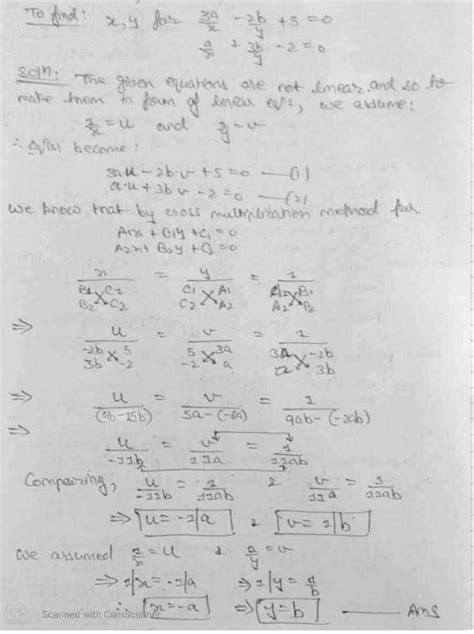 To find: x, y for 3a/x - 2b/y + 5 = 0
a/x + 3b/y - 2 = 0
Soln: The given equations are not linear and so to
make them in form of linear eqns, we assume:
1/x = u and 1/y = v
∴ eqns become:
3au - 2bv + 5 = 0 —(1)
a·u + 3b·v - 2 = 0 —(2)
we know that by cross multiplication method for
A1x + B1y + C1 = 0
A2x + B2y + C2 = 0
x = y = 1
B1 C1 C1 A1 A1 B1
B2 C2 C2 A2 A2 B2
⇒ u = v = 1
-2b 5 5 3a 3a -2b
3b -2 -2 a a 3b
⇒ u/(4b-15b) = v/5a-(-6a) = 1/9ab-(-2ab)
⇒
u/-11b = v/11a = 1/11ab
Comparing, u/-11b = 1/11ab & v/11a = 1/11ab
⇒ u = -1/a & v = 1/b
we assumed 1/x = u & 1/y = v
⇒ 1/x = -1/a ⇒ 1/y = 1/b
∴ x = -a ⇒ y = b — Ans
CS Scanned with CamScanner